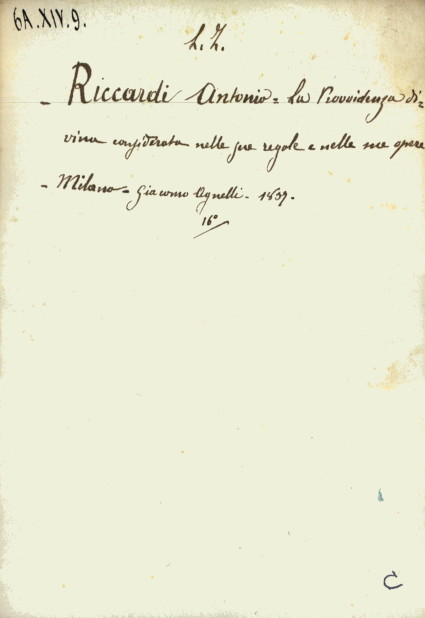 6A.XIV.9.
L. Z.
- Riccardi Antonio = La Provvidenza di=
vina considerata nelle sue regole e nelle sue opere
- Milano = Giacomo Agnelli - 1837.
16°
C